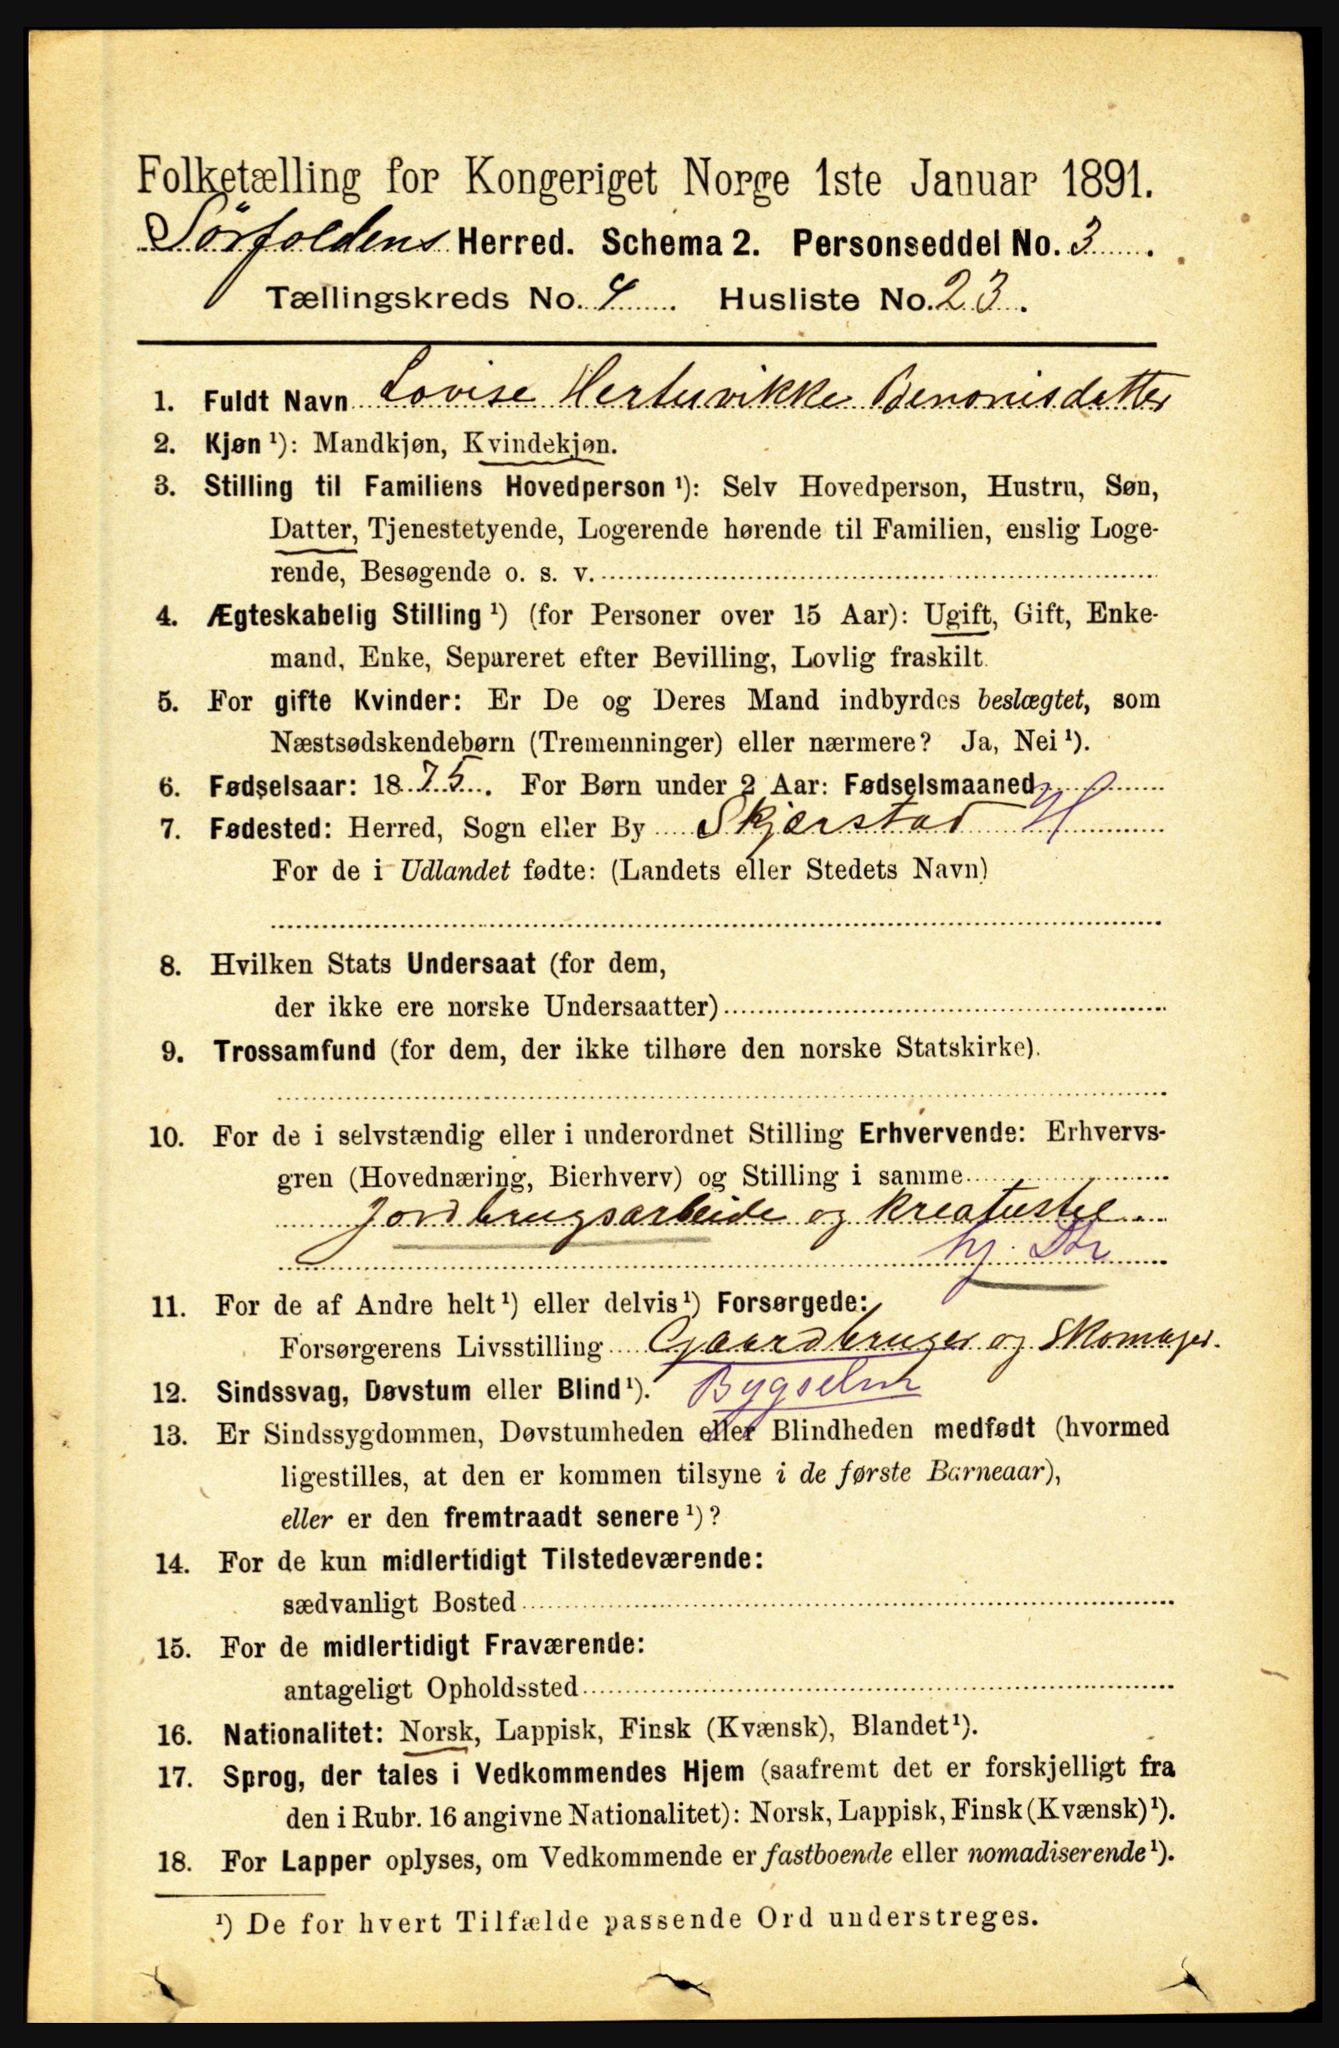 Folketælling for Kongeriget Norge 1ste Januar 1891.
Sörfoldens Herred. Schema 2. Personseddel No. 3.
Tællingskreds No. 4. Husliste No. 23.
1. Fuldt Navn Lovise Hertervikke Benonisdatter
2. Kjøn ¹): Mandkjøn, Kvindekjøn.
3. Stilling til Familiens Hovedperson ¹): Selv Hovedperson, Hustru, Søn,
Datter, Tjenestetyende, Logerende hørende til Familien, enslig Loge-
rende, Besøgende o. s. v.
4. Ægteskabelig Stilling ¹) (for Personer over 15 Aar): Ugift, Gift, Enke-
mand, Enke, Separeret efter Bevilling, Lovlig fraskilt.
5. For gifte Kvinder: Er De og Deres Mand indbyrdes beslægtet, som
Næstsødskendebørn (Tremenninger) eller nærmere? Ja, Nei ¹).
6. Fødselsaar: 1875. For Børn under 2 Aar: Fødselsmaaned
7. Fødested: Herred, Sogn eller By Skjærstad H
For de i Udlandet fødte: (Landets eller Stedets Navn)
8. Hvilken Stats Undersaat (for dem,
der ikke ere norske Undersaatter)
9. Trossamfund (for dem, der ikke tilhøre den norske Statskirke).
10. For de i selvstændig eller i underordnet Stilling Erhvervende: Erhvervs-
gren (Hovednæring, Bierhverv) og Stilling i samme
Jordbrugsarbeide og kreaturstel.
hj. Dtr
11. For de af Andre helt ¹) eller delvis ¹) Forsørgede:
Forsørgerens Livsstilling Gaardbruger og Skomager.
12. Sindssvag, Døvstum eller Blind ¹).
13. Er Sindssygdommen, Døvstumheden eller Blindheden medfødt (hvormed
ligestilles, at den er kommen tilsyne i de første Barneaar),
eller er den fremtraadt senere ¹)?
14. For de kun midlertidigt Tilstedeværende:
sædvanligt Bosted
15. For de midlertidigt Fraværende:
antageligt Opholdssted
16. Nationalitet: Norsk, Lappisk, Finsk (Kvænsk), Blandet ¹).
17. Sprog, der tales i Vedkommendes Hjem (saafremt det er forskjelligt fra
den i Rubr. 16 angivne Nationalitet): Norsk, Lappisk, Finsk (Kvænsk) ¹).
18. For Lapper oplyses, om Vedkommende er fastboende eller nomadiserende ¹).
¹) De for hvert Tilfælde passende Ord understreges.